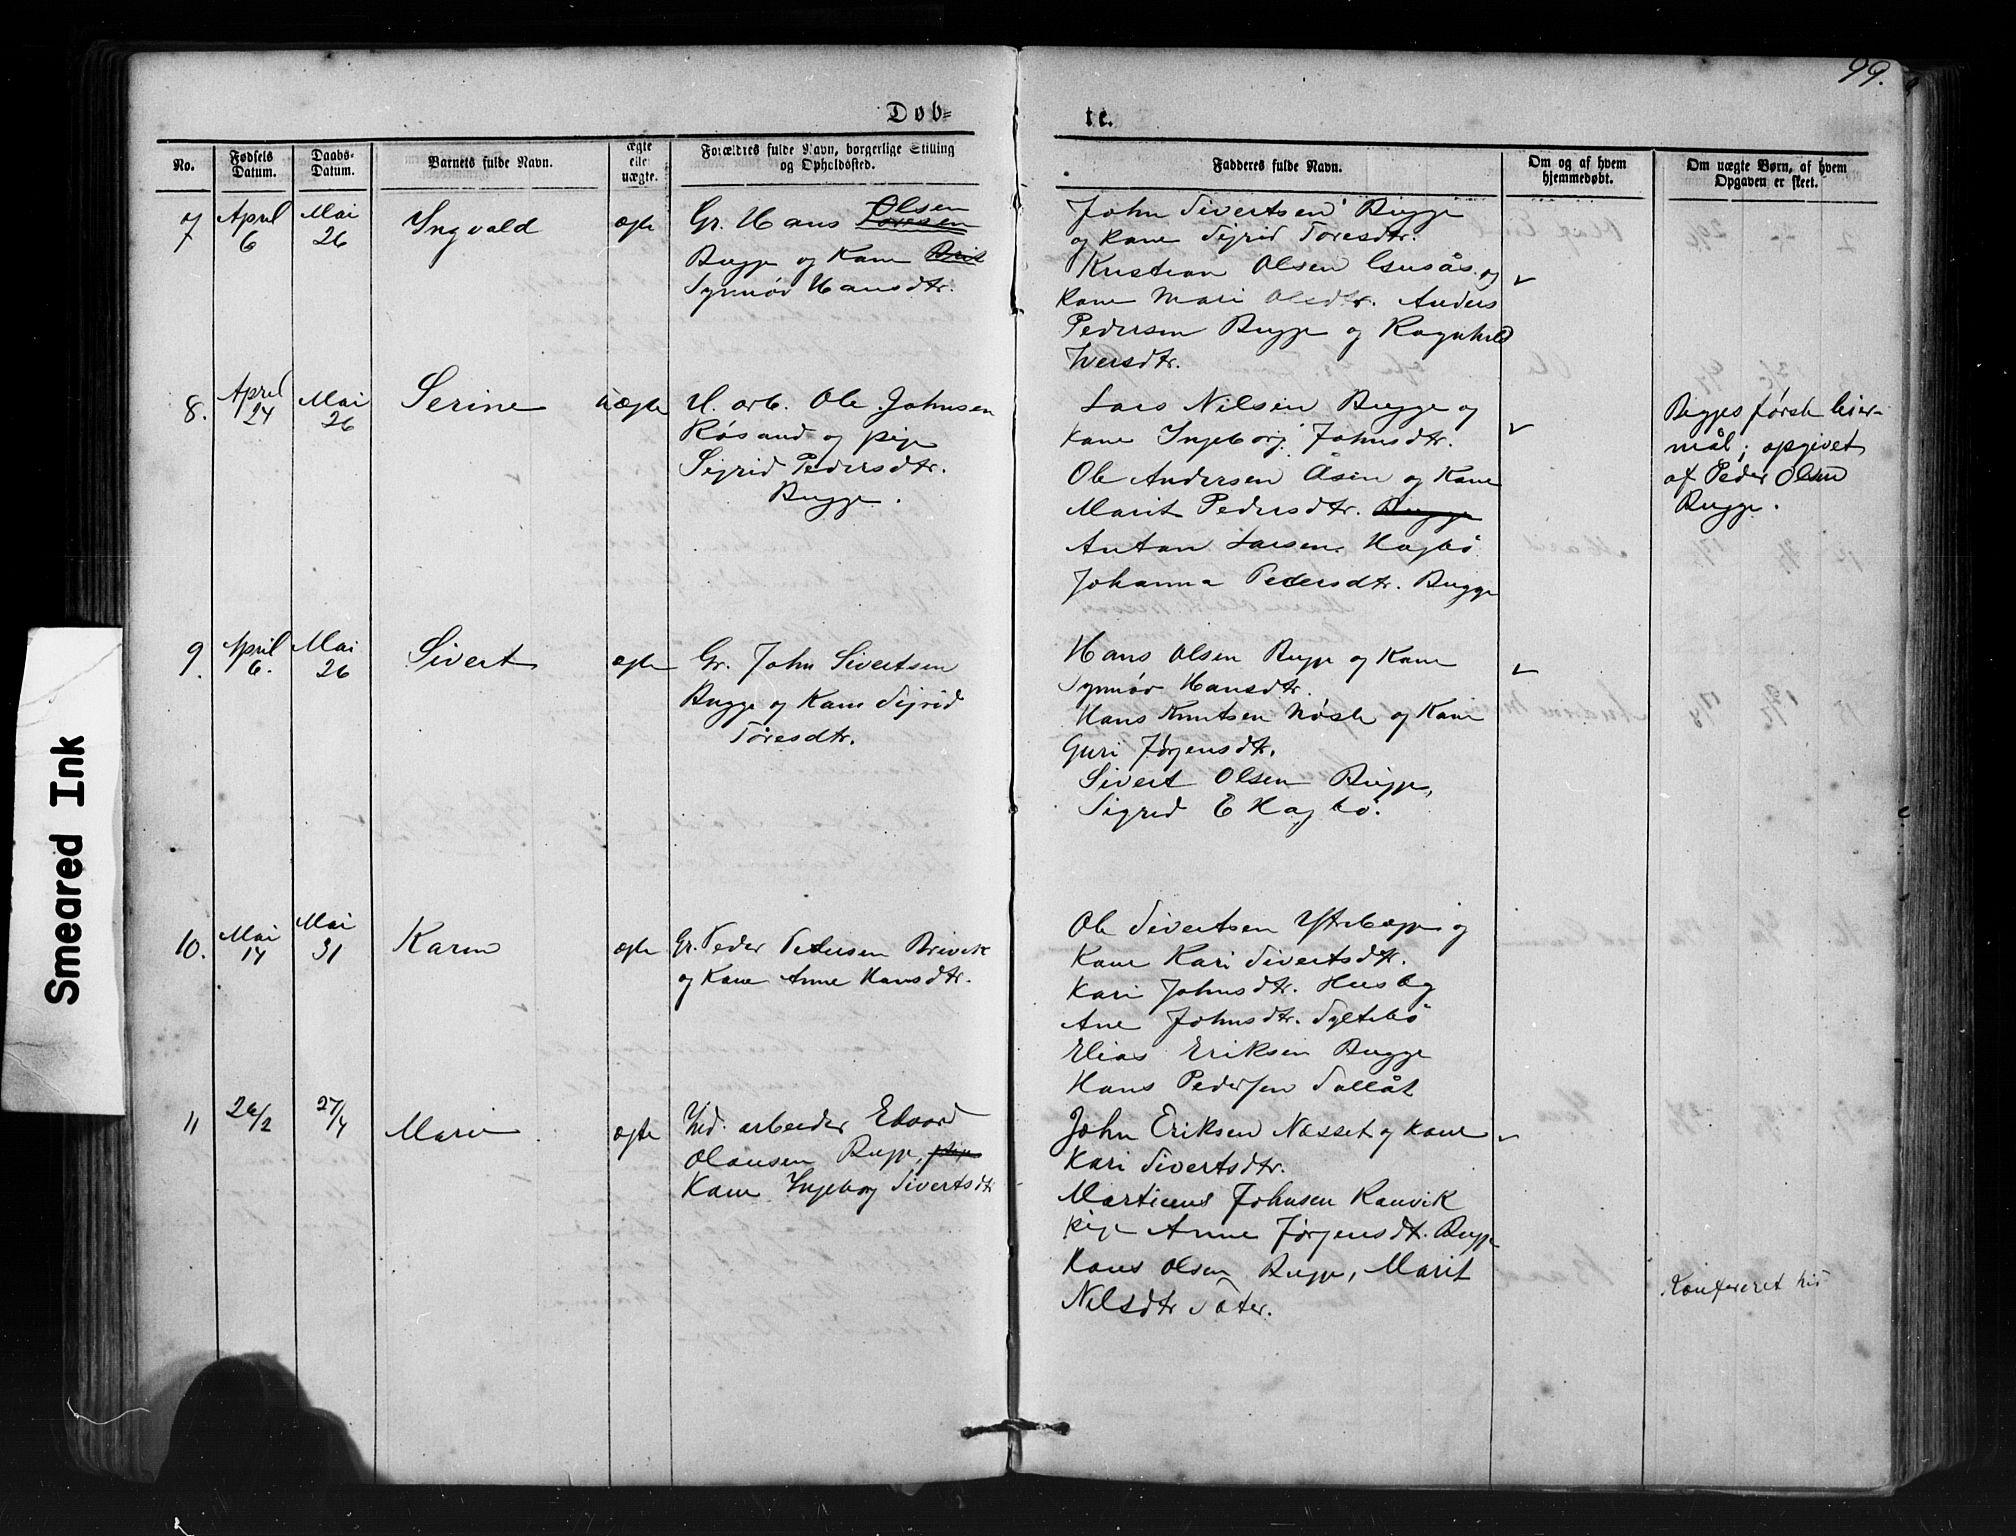 99.
Døb=
te.
No.
Fødsels Datum.
Daabs- Datum.
Barnets fulde Navn.
ægte eller uægte.
Forældres fulde Navn, borgerlige Stilling og Opholdssted.
Fadderes fulde Navn.
Om og af hvem hjemmedøbt.
Om uægte Børn, af hvem Opgaven er skeet.
7
April 6
Mai 26
Ingvald
ægte
Gr. Hans Olsen
Bugge og Kone
Synnøv Hansdtr.
John Sivertsen Bugge
og Kone Sigrid Toresdtr.
Kristian Olsen Gusås og
Kone Mari Olsdtr. Anders
Pedersen Bugge og Ragnhild
Iversdtr.
8.
April 24
Mai 26
Serine
uægte
U. arb. Ole Johnsen
Røsand og pige
Sigrid Pedersdtr.
Bugge.
Lars Nilsen Bugge og
Kone Ingeborg Johnsdtr.
Ole Andersen Åsen og Kone
Marit Pedersdtr. Bugge
Anton Larsen Hagbø
Johanna Pedersdtr. Bugge
Begges første leier-
mål; opgivet
af Peder Olsen
Bugge.
9.
April 6.
Mai 26
Sivert
ægte
Gr. John Sivertsen
Bugge og Kone Sigrid
Toresdtr.
Hans Olsen Bugge og Kone
Synnøv Hansdtr.
Hans Knutsen Nøsle og Kone
Guri Jørgensdtr.
Sivert Olsen Bugge,
Sigrid E Hagbø.
10.
Mai 14
Mai 31
Karen
ægte
Gr. Peder Pedersen Brivik
og Kone Anne Hansdtr.
Ole Sivertsen Ytrebugge og
Kone Kari Sivertsdtr.
Kari Johnsdtr. Husby
Ane Johnsdtr. Syltebø
Elias Eriksen Bugge
Hans Pedersen Sollåt
11
26/2
27/4
Marie
ægte
Ind. arbeider Edvard
Olausen Bugge, pige
Kone Ingeborg Sivertsdtr
John Eriksen Næsset og Kone
Kari Sivertsdtr.
Martinus Johnsen Ranvik
pige Anne Jørgensdtr. Bugge
Hans Olsen Bugge, Marit
Nilsdtr Sæter.
Konfereret hid
Smeared Ink